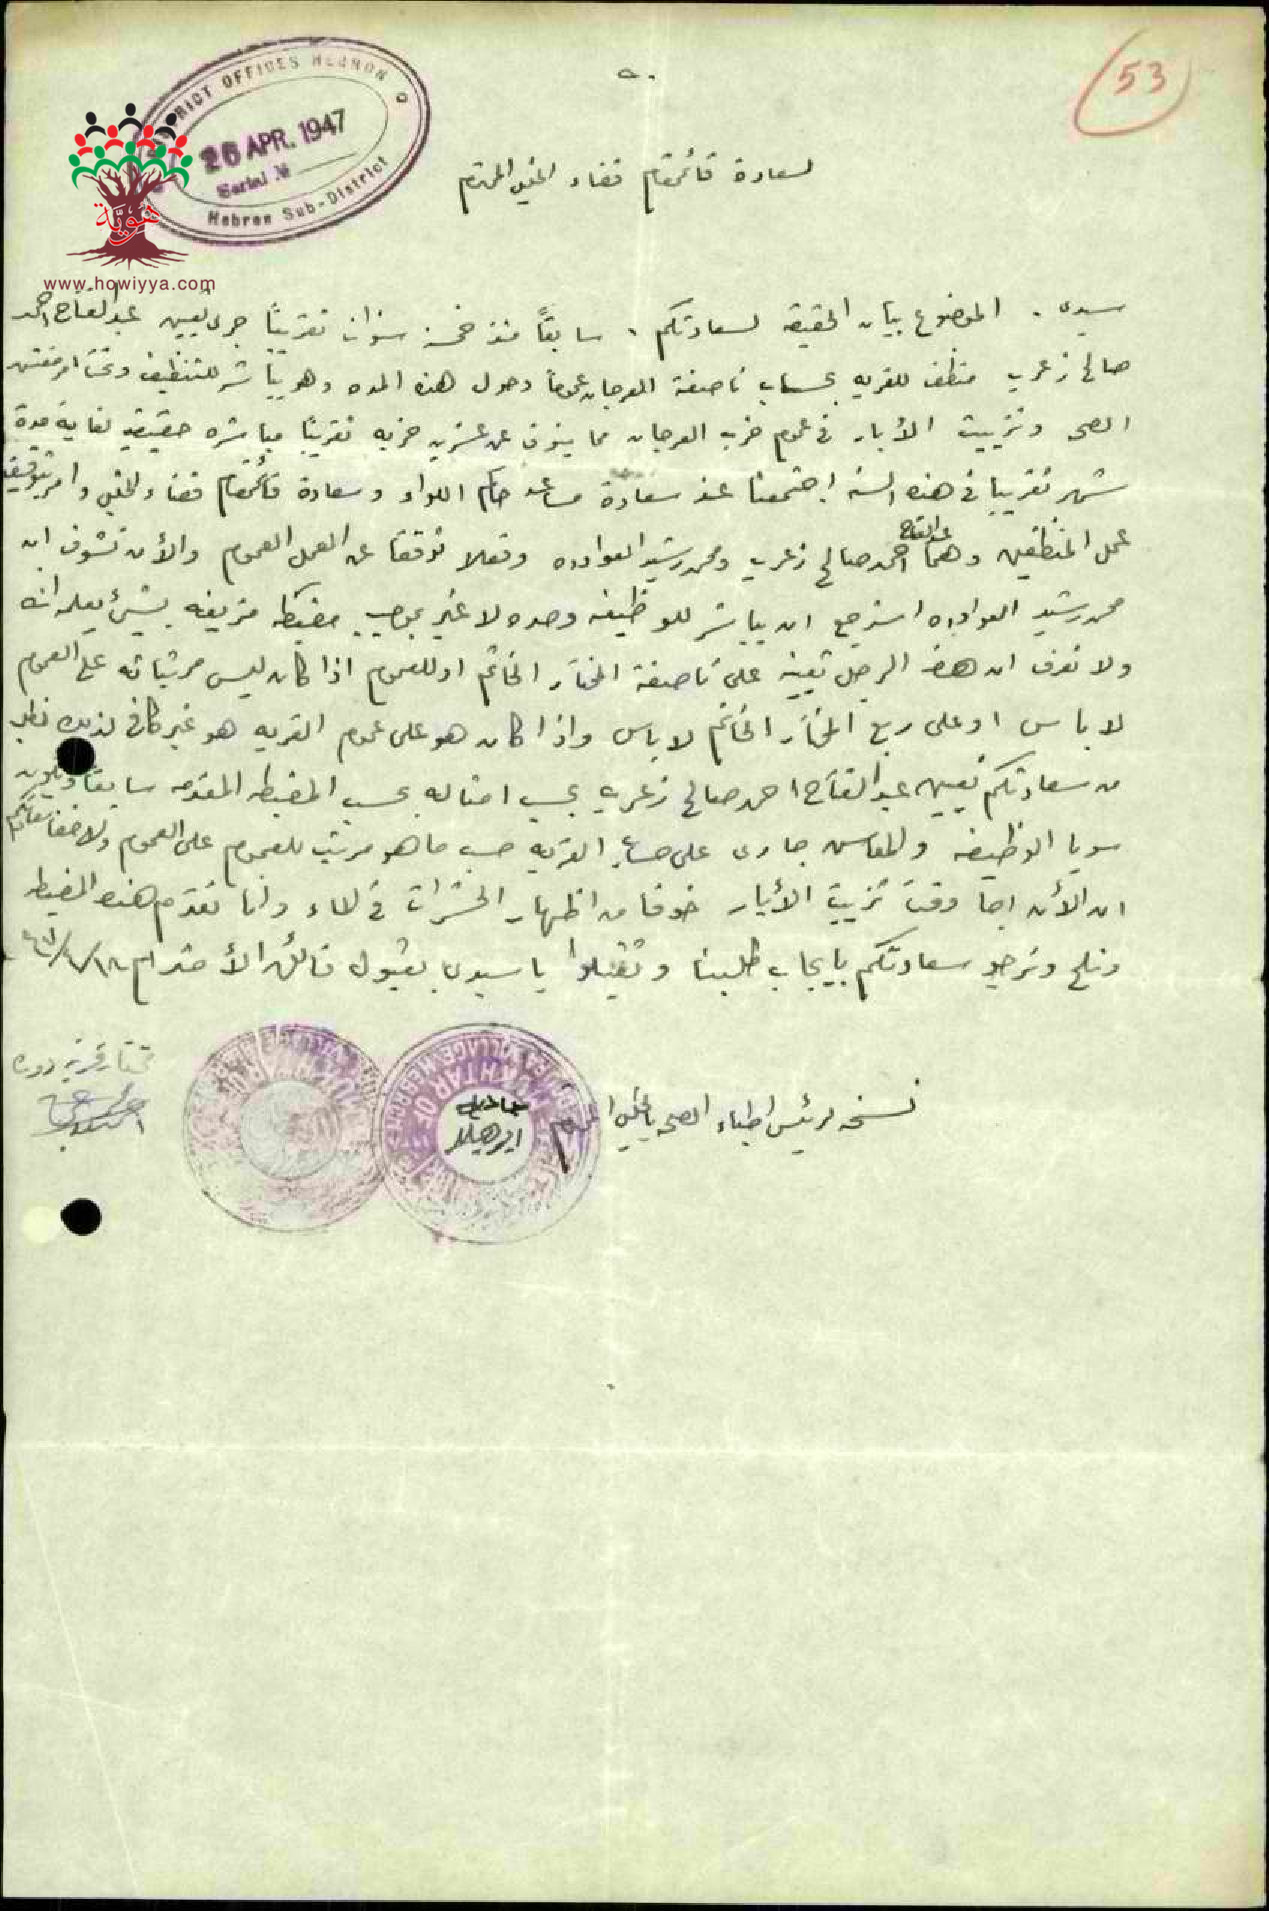 53
DISTRICT OFFICES HEBRON
26 APR. 1947
Serial №
Hebron Sub-District
هوية
www.howiyya.com
لسعادة قائمقام قضاء الخليل المحترم
سيدي . الموضوع بيان الحقيقه لسعادتكم . سابقاً منذ خمسة سنوات تقريباً جرى تعيين عبدالفتاح احمد
صالح زعرب منظف للقريه بحساب ناصفة العرجان عموماً وحول هذه المده وهو يباشر للتنظيف وتحت امر مفتش
الصحه وتزييت الأبار في عموم خرب العرجان مما ينوف عن عشرين خربه تقريباً مباشره حقيقيه لغاية مدة
شهر تقريبا في هذه السنه اجتمعنا عند سعادة مساعد حاكم اللواء وسعادة قائمقام قضاء الخليل وامر بتوقيف
عمل المنظفين وهما عبدالفتاح احمد صالح زعرب ومحمد رشيد العواوده وفعلا توقفا عن العمل العموم والأن نشوف ان
محمد رشيد العواوده استرجع ان يباشر للوظيفه وحده لا غير بموجب مضبطه مزيفه بشيئ يعلمه الله
ولا نعرف ان هذا الرجل تعينه على ناصفة المختار الخاتم او للعموم اذا كان ليس مرتباته على العموم
لا باس او على ربع المختار الخاتم لا باس واذا كان هو على عموم القريه هو غير كافي لذلك نطلب
من سعادتكم تعيين عبدالفتاح احمد صالح زعرب بحسب المضبطه المقدمه سابقا
سويا الوظيفه والمعاش جارى على حساب القريه حسب ما هو مرتب للعموم على العموم ولا خفا سعادتكم
ان الأن اجا وقت تزييت الأبار خوفا من اظهار الحشرات في الماء وانا نقدم هذه المضبطه
ونلح ونرجو سعادتكم بايجاب طلبنا وتفضلوا يا سيدي بقبول فائق الأحترام ١٨/٤/٤٧
مختار قرية دورا
نسخه لرئيس اطباء الصحه بالخليل المحترم
MUKHTAR OF
VILLAGE HEBRON